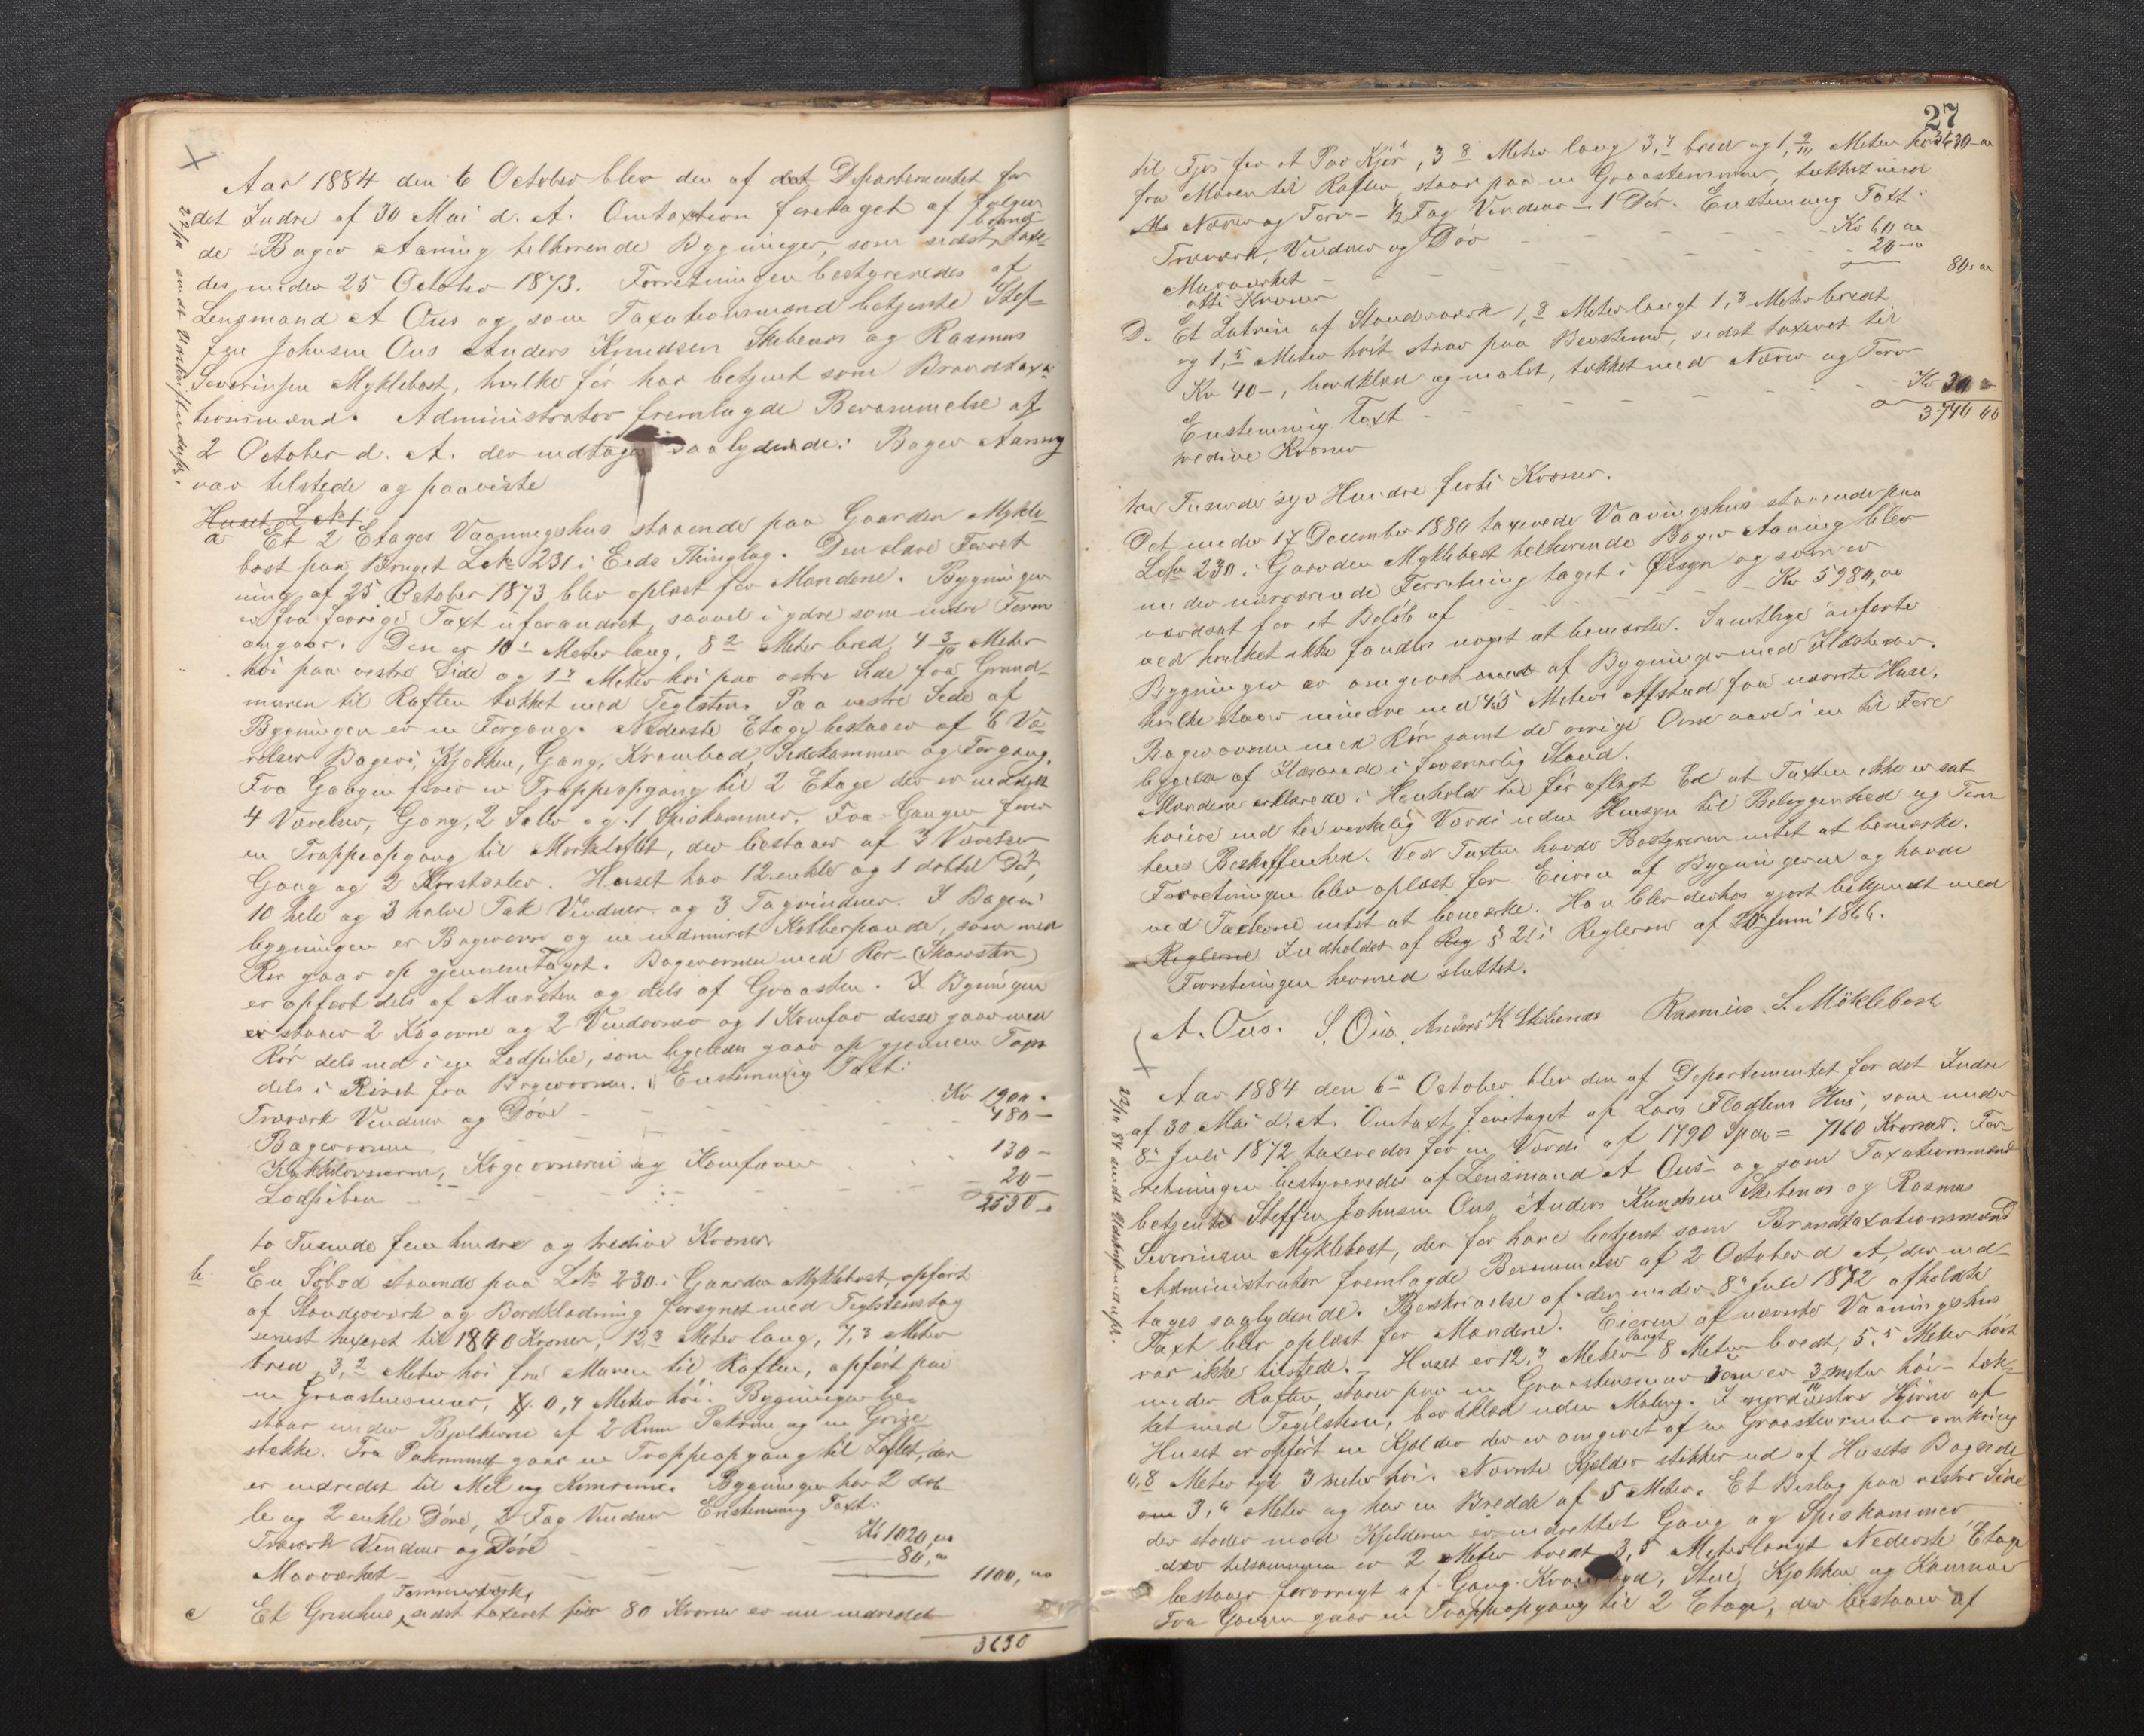 Aar 1884 den 6 October blev den af det Departementet for
det Indre af 30 Mai d. A. Omtaxtion foretaget af følgen
de Bager Aaning tilhørende Bygninger, som sidst brand taxe-
des under 25 October 1873. Forretningen bestyreredes af
Lensmand A Ous og som Taxationsmænd betjente Stef-
fen Johnsen Ous Anders Knudsen Skibenes og Rasmus
Severinsen Myklebost, hvilke før har betjent som Brandtaxa
tionsmænd. Administrator fremlagde Berammelse af
2 October d. A. der indtages saalydende: Bager Aaning
var tilstede og paaviste
Huset L No 1
a Et 2 Etages Vaaningshus staaende paa Gaarden Mykle-
bost paa Bruget L No 231 i Eids Thinglag. Den eldre Forret
ning af 25 October 1873 blev oplæst for Mændene. Bygningen
er fra forrige Taxt uforandret, saavel i ydre som indre Form
angaar. Den er 10 Meter lang, 8 2 Meter bred, 4 3/10 Meter
høi paa vestre Side og Meter høi paa østre Side fra Grund-
muren til Raften tækket med Teglsten. Paa vestre Side af
Bygningen er en Forgang. Nederste Etage bestaaer af 6 Væ-
relser Bageri, Kjøkken, Gang, Krambod, Sidekammer og Forgang.
Fra Gangen fører en Trappeopgang til 2 Etage der er inddelt
4 Værelser, Gang, 2 Saler og 1 Spiskammer. Fra Gangen fører
en Trappeopgang til Mørkeloftet, der bestaaer af 3 Værelser
Gang og 2 . Huset har 12 enkle og 1 dobbel Dør,
10 hele og 3 halve Fak Vinduer og 3 Tagvinduer. I Bageri
bygningen er Bagerovn og en indmuret Kobberpande, som med
Rør gaar op gjennem Taget. Bagerovnen med Rør (Skorsten)
er opført dels af Mursten og dels af Graasten. I Bygningen
er staaer 2 Kogovne og 2 Vindovner og 1 Komfur disse gaar med
Rør dels ned i en Lodpibe, som ligeledes gaar op gjennem Taget
dels i Røret fra Bagerovnen. Enstemmig Taxt:
Træverk Vinduer og Døre - - - Kr 1900 -
Bagerovnen - - - 480 -
Kakkelovnerne, Kogeovnene og Komfuren - - 130 -
Lodpiben - - - 20 -
2530 -
to Tusinde fem hundre og tredive Kroner
b. En Søbod staaende paa L No 230 i Gaarden Myklebost, opført
af Standerverk og Bordklædning forsynet med Teglstenstag
senest taxeret til 1840 Kroner, 12 3 Meter lang, 7,3 Meter
bred, 3,2 Meter høi fra Muren til Raften, opført paa
en Graastensmur, 0,7 Meter høi. Bygningen be-
staar under Bjelkerne af 2 Rum Pakrum og en Grise
stekke. Fra Pakrummet gaar en Trappeopgang til Loftet, der
er indredet til Mel og Kornrum. Bygningen har 2 dob-
le og 2 enkle Døre, 2 Fag Vinduer Enstemmig Taxt:
Træverk Vinduer og Døre - - - Kr 1020,00
Murverket - - - 80,00
1100,00
c Et Grisehus Tømmerverk, sidst taxeret før 80 Kroner er nu indredet
3630
22/10 sendt Udskrift
27
til Fjøs for et Par Kjør, 3 8 Meter lang 3,7 bred og 1, 9/10 Meter høi 3630-00
fra Muren til Raften, staar paa en Graastensmur, tækket med
Næver og Torv - 1/2 Fag Vinduer - 1 Dør. Enstemmig Taxt:
Træverk, Vinduer og Dør - - - Kr 60 00
Murverket - - - 20 - 00
80,00
otti Kroner
D. Et Latrin af Standverk 1, 8 Meter langt 1,3 Meter bredt
og 1,5 Meter høit staar paa , sidst taxeret til
Kr 40 -, bordklæd og malet, tækket med Næver og Torv
Enstemmig Taxt - - - Kr 30 00
3740 00
tredive Kroner
tre Tusinde syv Hundre førti Kroner.
Det under 17 December 1880 taxerede Vaaningshus staaende paa
LNo 230 i Gaarden Myklebost tilhørende Bager Aaning blev
under nærværende Forretning taget i Øiesyn og som er
værdsat for et Beløb af - - - Kr 5980,00
ved hvilket ikke fandtes noget at bemærke. Samtlige anførte
Bygninger er omgivet med af Bygninger med Ildsteder.
hvilke staar mindre end 45 Meters Afstand fra nævnte Huse.
Bagerovnen med Rør samt de øvrige Ovne vare i en til Fore
byggelse af Ildsvaade i forsvarlig Stand.
Mændene erklærede i Henhold til før aflagt Ed at Taxten ikke er sat
høiere end til virkelig Værdi uden Hensyn til Beliggenhed og Tom-
tens Beskaffenhed. Ved Taxten havde Bestyreren intet at bemærke.
Forretningen blev oplæst for Eieren af Bygningerne og havde
ved Taxterne intet at bemærke. Han blev derhos gjort bekjendt med
Reglerne Indholdet af Reg § 21 i Reglerne af 20 Juni 1866.
Forretningen hermed sluttet.
A. Ous. S. Ous. Anders K Skibenæs Rasmus. S. Möklebost
Aar 1884 den 6te October blev den af Departementet for det Indre
af 30 Mai d. A. Omtaxt foretaget af Lars Flodtens Hus, som under
8de Juli 1872 taxeredes for en Værdi af 1790 Spd = 7160 Kroner. For-
retningen bestyreredes af Lensmand A Ous og som Taxationsmænd
betjente Steffen Johnsen Ous, Anders Knudsen Skibenæs og Rasmus
Severinsen Myklebost, der før have betjent som Brandtaxationsmænd
Administrator fremlagde Berammelse af 2 October d A, der ind-
tages saalydende. Beskrivelse af den under 8de Juli 1872 afholdte
Taxt blev oplæst for Mændene. Eieren af nævnte Vaaningshus
var ikke tilstede. - Huset er 12,7 Meter langt 8 Meter bredt, 5,5 Meter høit
under Raften, staar paa en Graastensmur som er 3/10 meter høi - tæk-
ket med Teglsten, bordklæd uden Maling. I nordvestre Hjørne af
Huset er opført en Kjelder der er omgivet af en Graastensmur omkring
0,8 Meter tyk 3 meter høi. Nævnte Kjelder stikker ud af Husets Bagside
om 3,6 Meter og har en Bredde af 5 Meter. Et Bislag paa vestre Side
der støder mod Kjelderen er indrettet Gang og Spiskammer
der tilsammen er 2 Meter bredt 3,5 Meter langt Nederste Etage
bestaaer forøvrigt af Gang Krambod, Stue, Kjøkken og Kammer
Fra Gangen gaar en Trappeopgang til 2 Etage, der bestaaer af
22/10 84 sendt Udskrift